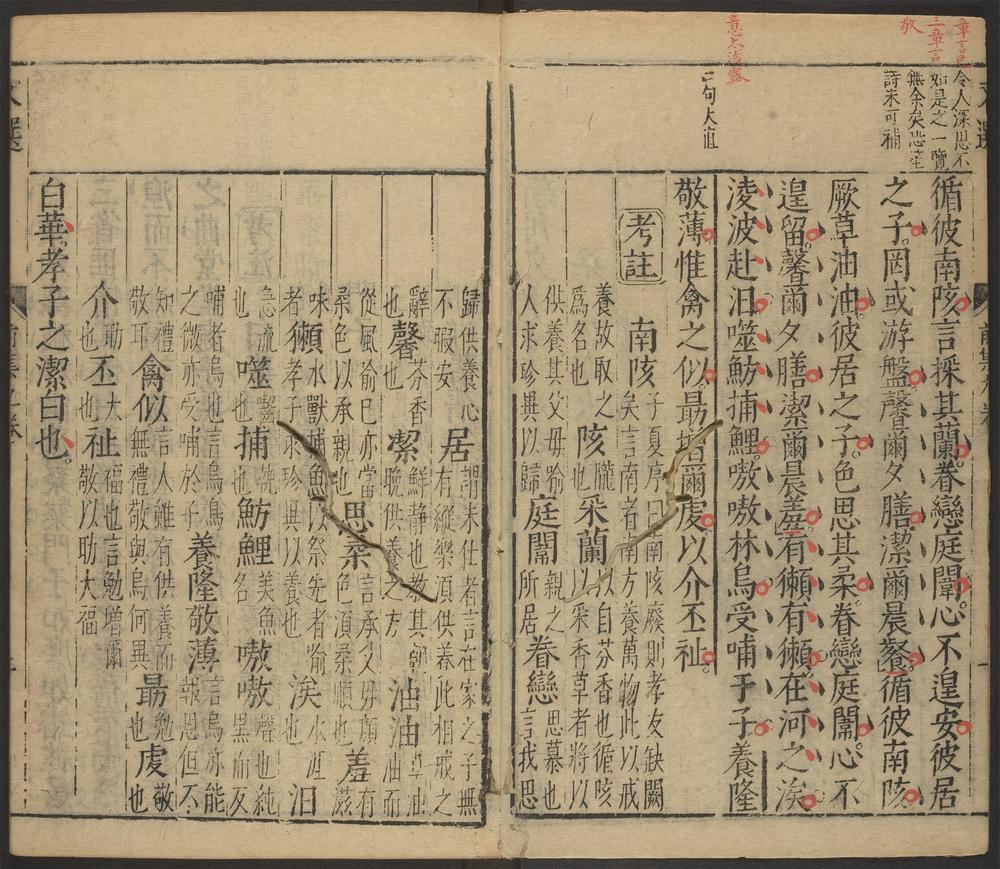 章言色
三章言
敬
意不淺露
令人深思不
如是之一覽
無余矣恐笙
詩未可補
二句大值
循彼南陔言採其蘭眷戀庭闈心不遑安彼居
之子罔或游盤馨爾夕膳潔爾晨餐循彼南陔
厥草油油彼居之子色思其柔眷戀庭闈心不
遑留馨爾夕膳潔爾晨羞有獺有獺在河之涘
凌波赴汨噬魴捕鯉嗷嗷林烏受哺于子養隆
敬薄惟禽之似最增爾虔以介丕祉
考註
南陔子夏序曰南陔廢則孝友缺闕矣言南者南方養萬物此以戒
養故取之為名也陔隴也采蘭以自芬香也循陔以采香草者將以
供養其父母喻人求珍異以歸庭闈親之所居眷戀思慕也言我思
歸供養心不暇安居謂未仕者言在家之子無有縱樂須供養此相戒之
辭也馨芬香也潔鮮靜也教其朝晚供養之方油油草油油而
從風喻已亦當柔色以承親也思柔言承父母顏色須柔順也羞有滋
味者獺水獸捕魚以祭先者喻孝子求珍異以養也涘水涯也汨
急流也噬齧也捕也魴鯉美魚名嗷嗷聲也純黑而反
哺者烏也言烏鳥之微亦受哺於子養隆敬薄言烏亦能報恩但不
知禮敬耳禽似言人雖有供養而無禮敬與烏何異最勉也虔敬也
介助也丕大也祉福也言勉增爾敬以助大福
白華孝子之潔白也。